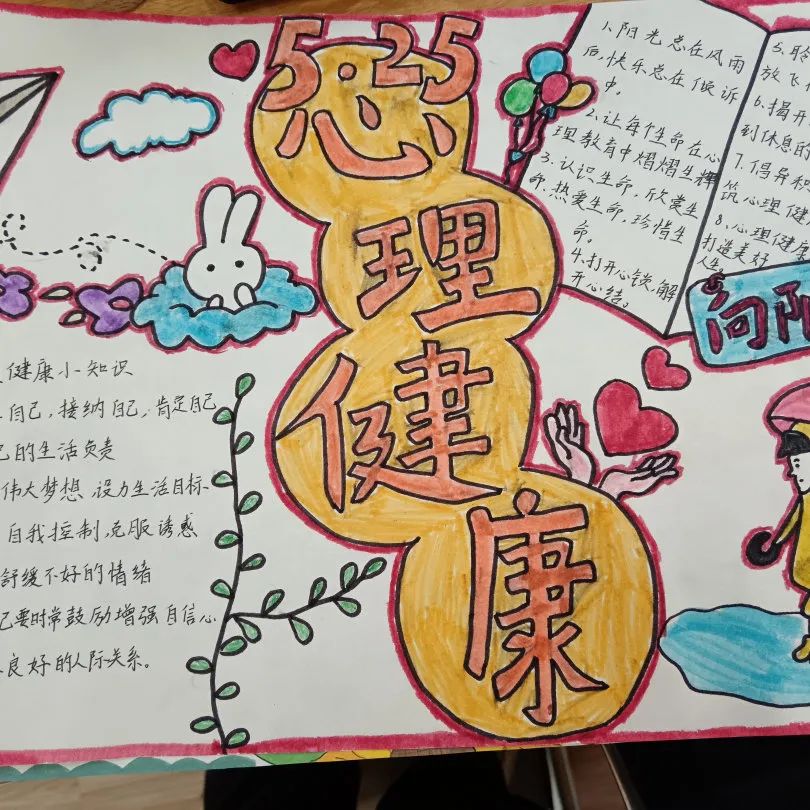 5.25
心
理
健
康
1.阳光总在风雨
后,快乐总在倾诉
中。
2.让每个生命在心
理教育中熠熠生辉
3.认识生命,欣赏生
命,热爱生命,珍惜生
命。
4.打开心锁,解
开心结。
5.聆
放飞
6.揭开
到休息的
7.倡导积
筑心理健
8.心理健康
打造美好
人生
向阳
健康小知识
自己,接纳自己,肯定自己
己的生活负责
伟大梦想,设力生活目标
自我控制,克服诱惑
舒缓不好的情绪
己要时常鼓励增强自信心
良好的人际关系。